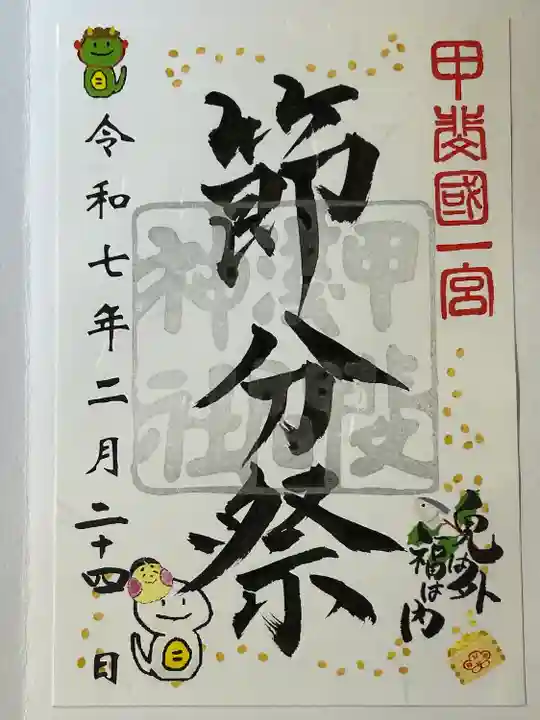 甲斐國一宮
節分祭
甲斐
浅間
神社
鬼は外
福は内
令和七年二月二十四日